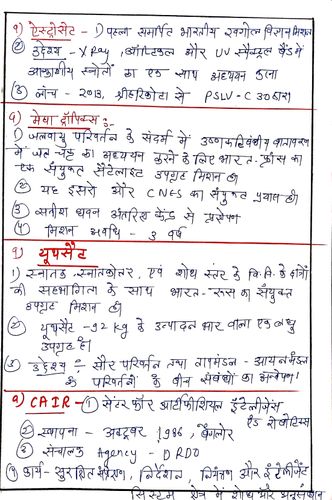 १) ऐस्ट्रोसैट - ① पहला समर्पित भारतीय खगोल विज्ञान मिशन
② उद्देश्य - X Ray, ऑप्टिकल और UV स्पैक्ट्रल बैंड में
आकाशीय स्त्रोतों का एक साथ अध्ययन करना
③ लांच - 2013, श्रीहरिकोटा से PSLV - C 30 द्वारा
९) मेघा ट्रॉपिक्स :-
① जलवायु परिवर्तन के संदर्भ में उष्णकटिबंधीय वातावरण
में जल चक्र का अध्ययन करने के लिए भारत - फ्रांस का
एक संयुक्त सैटेलाइट उपग्रह मिशन है।
② यह इसरो और CNES का संयुक्त प्रयास है।
③ सतीश धवन अंतरिक्ष केंद्र से प्रक्षेपण
④ मिशन अवधि - 3 वर्ष
१) यूथसैट
① स्नातक, स्नातकोत्तर, एवं शोध स्तर के वि.वि. के छात्रों
की सहभागिता के साथ भारत - रूस का संयुक्त
उपग्रह मिशन है।
② यूथसैट - 92 kg के उत्पादन भार वाला एक लघु
उपग्रह है।
③ उद्देश्य ÷ सौर परिवर्तन तथा तापमंडल - आयनमंडल
के परिवर्तनों के बीच संबंधों का अन्वेषण।
१) CAIR - ① सेंटर फॉर आर्टिफीशियल इंटेलीजेंस
एंड रोबोटिक्स
② स्थापना - अक्टूबर 1986, बैंगलोर
③ संचालक Agency - DRDO
④ कार्य - सुरक्षित संचार, निर्देशन नियंत्रण और इंटेलीजेंट
सिस्टम क्षेत्र में शोध और अनुसंधान